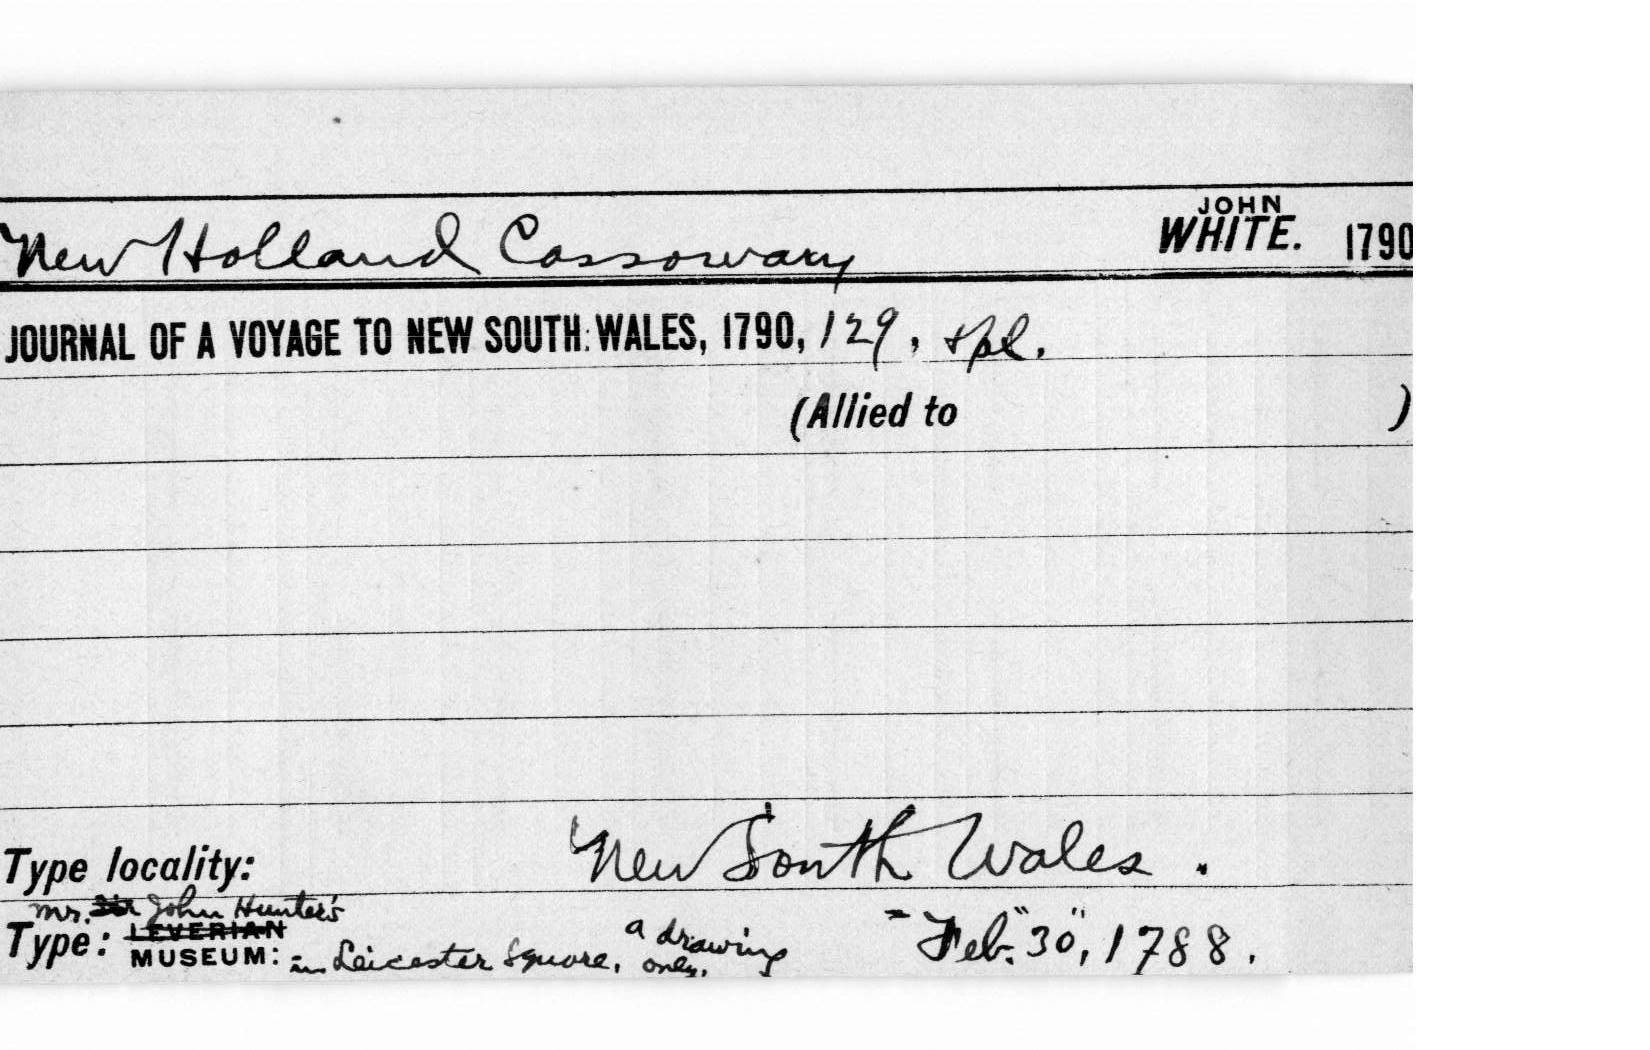 New Holland Cassowary JOHN WHITE. 1790
JOURNAL OF A VOYAGE TO NEW SOUTH WALES, 1790, 129, &pl.
(Allied to )
Type locality: New South Wales.
Mr. Sir John Hunter's
Type: LEVERIAN MUSEUM: in Leicester Square, a drawing only. = Feb. "30", 1788.